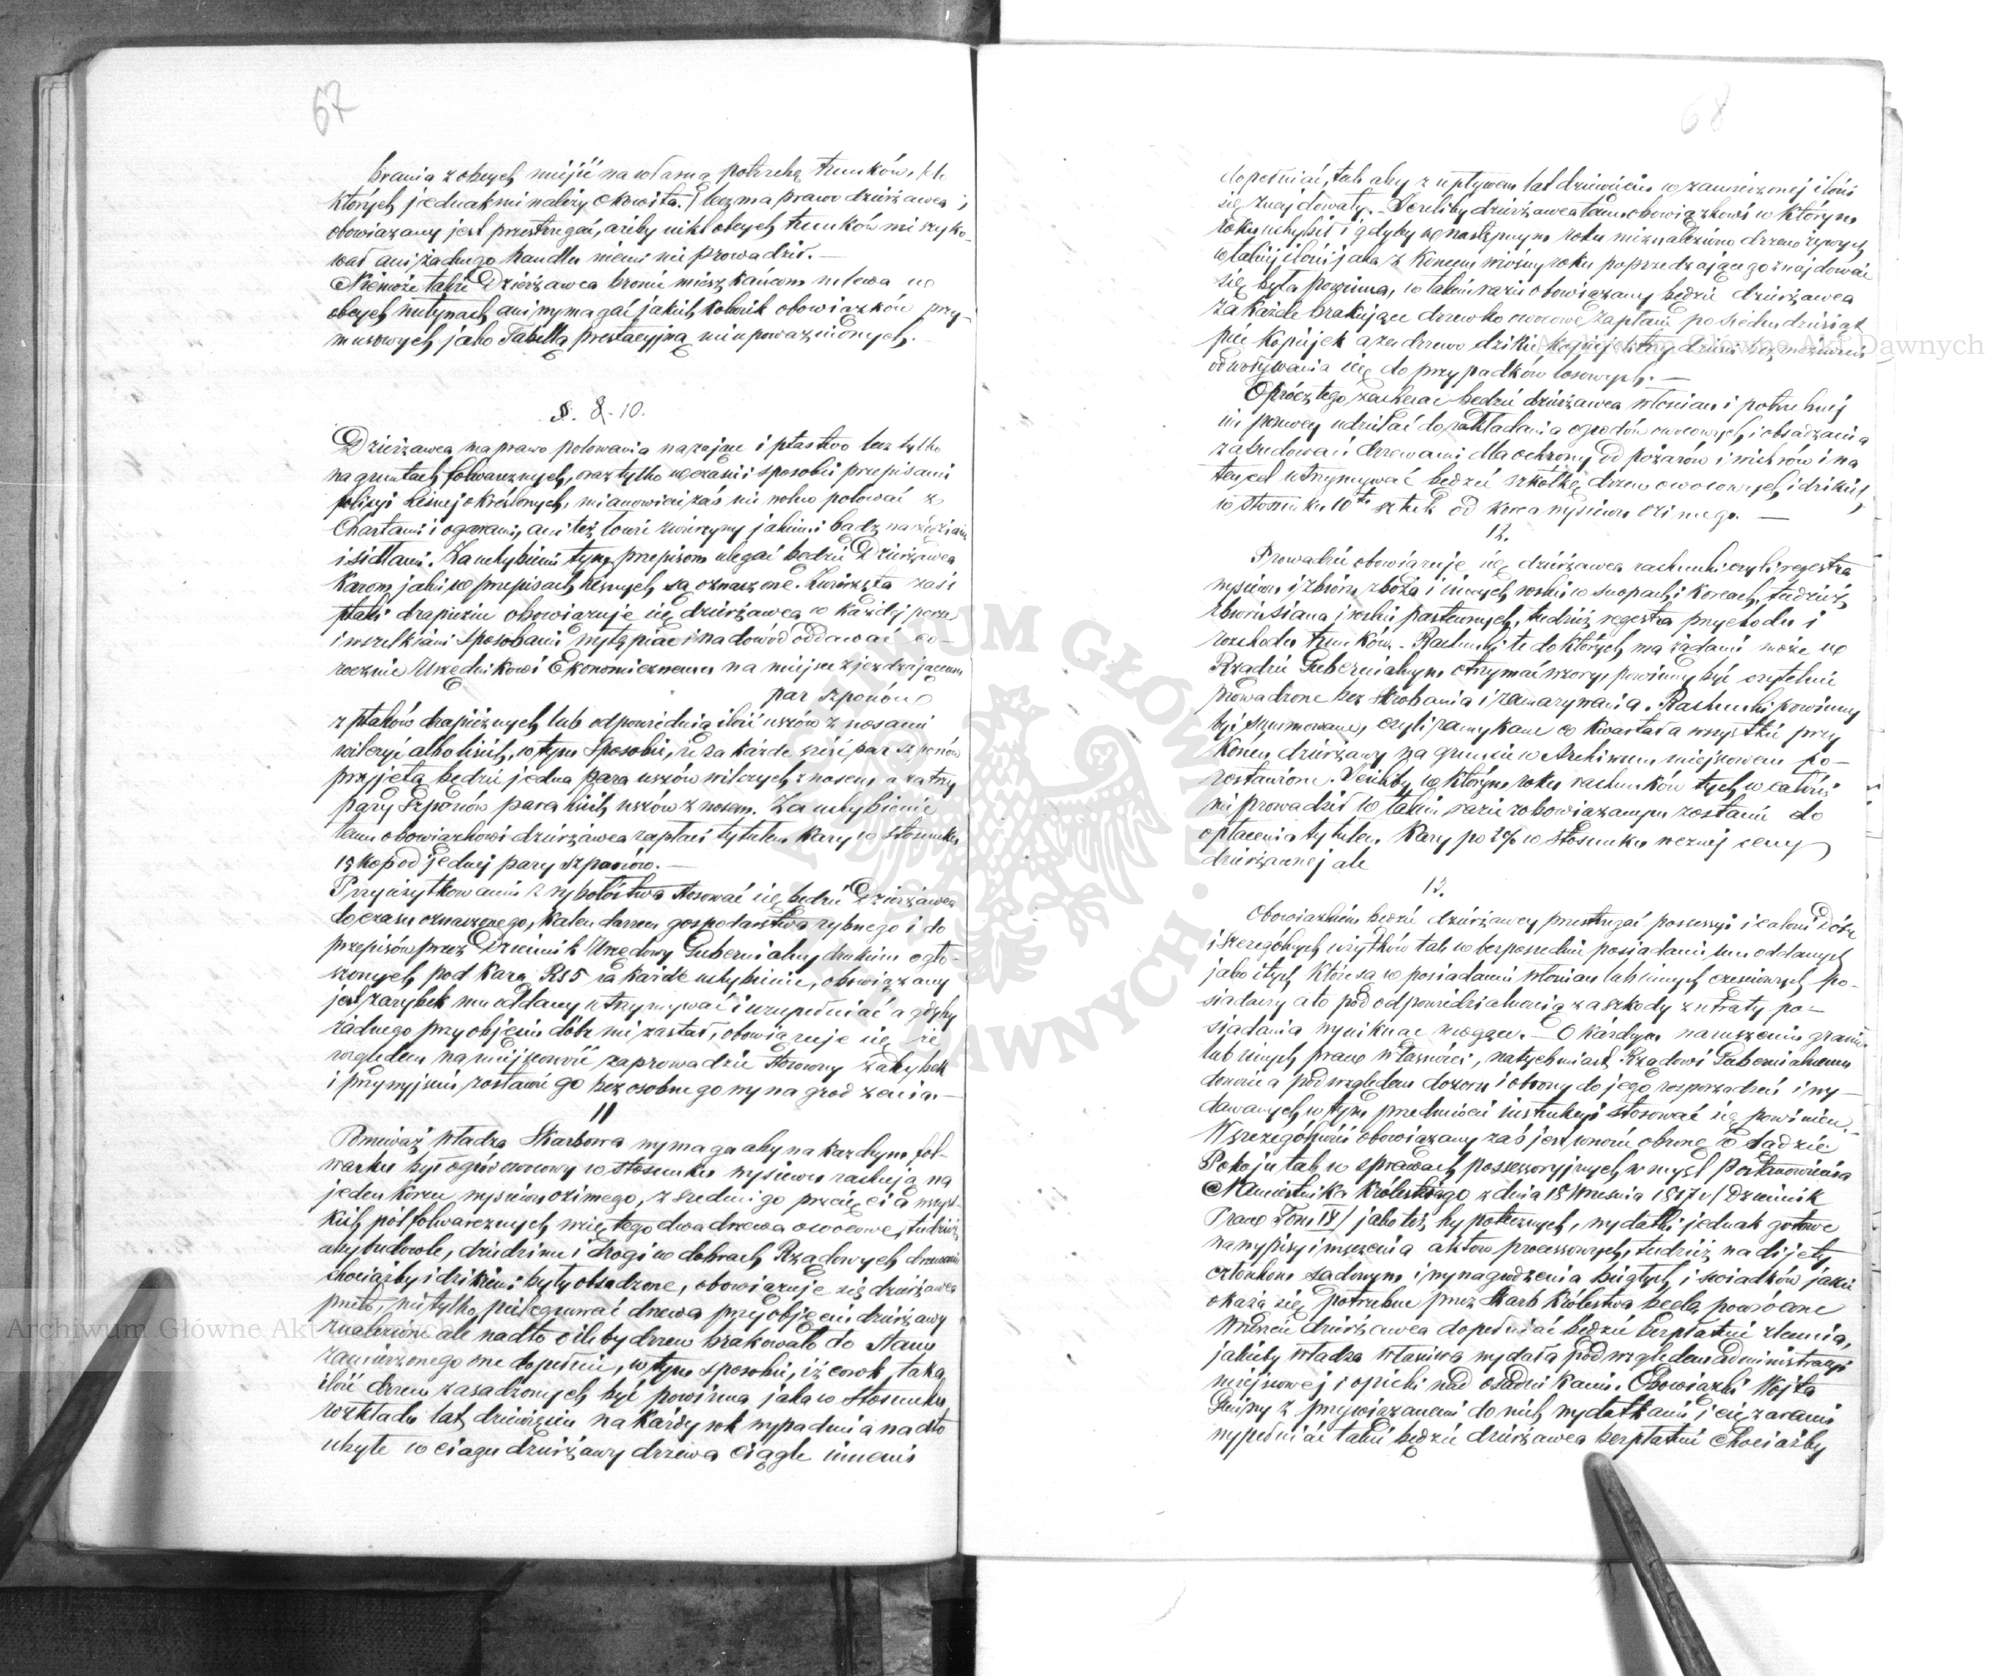 67
brania z obcych miejsc na własną potrzebę trunków, /do
których jednak nie należy okowita./ lecz ma prawo dzierżawca i
obowiązany jest przestrzegać, ażeby nikt obcych trunków nie szynko-
wał ani żadnego handlu niemi nie prowadził. —
Niemoże także Dzierżawca bronić mieszkańcom mlewa w
obcych młynach, ani wymagać jakichkolwiek obowiązków przy-
musowych jako Tabellą prestacyjną nieupoważnionych. —
§. 8. 10.
Dzierżawca ma prawo polowania na zające i ptastwo lecz tylko
na gruntach folwarcznych, oraz tylko w czasie i sposobie przepisami
policyi leśnej określonych, mianowicie zaś nie wolno polować z
Chartami i ogarami, ani też łowić zwierzyny jakiemi bądź narzędziami
i sidłami. Za uchybienie tym przepisom ulegać będzie Dzierżawca
karom jakie w przepisach leśnych są oznaczone. Zwierzęta zaś i
ptaki drapieżne obowiązuje się dzierżawca w każdej porze
i wszelkiemi sposobami wytępiać i na dowód oddawać co-
rocznie Urzędnikowi Ekonomicznemu na miejsce zjeżdżającemu
par szponów
z ptaków drapieżnych lub odpowiednią ilość uszów z nosami
wilczych albo lisich, w tym sposobie, że za każde sześć par szponów
przyjętą będzie jedna para uszów wilczych z nosem, a za trzy
pary szponów para lisich uszów z nosem. Za uchybienie
temu obowiązkowi dzierżawca zapłaci tytułem kary w stosunku
15 kop od jednej pary szponów. —
Przy użytkowaniu z rybołóstwa stosować się będzie Dzierżawca
do czasu oznaczonego, Kalendarzem gospodarstwa rybnego i do
przepisów przez Dziennik Urzędowy Gubernialny drukiem ogło-
szonych pod karą RS 5 za każde uchybienie, obowiązany
jest zarybek mu oddany utrzymywać i uzupełniać a gdyby
żadnego przy objęciu dóbr nie zastał, obowiązuje się ze
względem na miejscowość zaprowadzić stosowny zarybek
i przy wyjściu zostawić go bez osobnego wynagrodzenia. —
11
Ponieważ Władza Skarbowa wymaga aby na każdym fol-
warku był ogród owocowy w stosunku wysiewu rachując na
jeden korzec wysiewu ozimego, z średniego przecięcia wszyst-
kich pól folwarcznych wziętego dwa drzewa owocowe, tudzież
aby budowle, dziedzińce i drogi w dobrach Rządowych drzewami
chociażby i dzikiemi były obsadzone, obowiązuje się dzierżawca
przeto, nietylko pielęgnować drzewa przy objęciu dzierżawy
znalezione ale nadto o ile by drzew brakowało do stanu
zamierzonego one dopełnić, w tym sposobie, iż corok taką
ilość drzew zasadzonych być powinna jaka w stosunku
rozkładu lat dziewięciu na każdy rok wypadnie a nadto
ubyłe w ciągu dzierżawy drzewa ciągle innemi
68
dopełniać, tak aby z upływem lat dziewięciu w zamierzonej ilości
się znajdowały. — Jeżeliby dzierżawca temu obowiązkowi w którym
roku uchybił i gdyby w następnym roku nieznaleziono drzew żywych
w takiej ilości jaka z końcem wiosny roku poprzedzającego znajdować
się była powinna, w takim razie obowiązany będzie dzierżawca
za każde brakujące drzewko owocowe zapłacić po siedmdziesiąt
pięć kopiejek a za drzewo dzikie kopiejek trzydzieści bez możności
odwoływania się do przypadków losowych. —
Oprócz tego zachęcać będzie dzierżawca włościan i potrzebnej
im pomocy udzielać do zakładania ogrodów owocowych i obsadzania
zabudowań drzewami dla ochrony od pożarów i wichrów i na
ten cel utrzymywać będzie szkółkę drzew owocowych i dzikich
w stosunku 10ciu sztuk od korca wysiewu ozimego. —
12.
Prowadzić obowiązuje się dzierżawca rachunki czyli regestra
wysiewu i zbioru zboża i innych roślin w snopach i korcach, tudzież
zbioru siana i roślin pastewnych, tudzież regestra przychodu i
rozchodu trunków. Rachunki te do których na żądanie może w
Rządzie Gubernialnym otrzymać wzory, powinny być czytelnie
prowadzone bez skrobania i zamazywania. Rachunki powinny
być sumowane, czyli zamykane co kwartał a wszystkie przy
końcu dzierżawy na gruncie w Archiwum miejscowem po-
zostawione. Jeżeliby w którym roku rachunków tych w całości
nie prowadził w takim razie zobowiązanym zostanie do
opłacenia tytułem kary po 2% w stosunku rocznej ceny
dzierżawnej ale
13.
Obowiązkiem będzie dzierżawcy przestrzegać possessyi i całości dóbr
i szczególnych użytków tak w bezpośredniem posiadaniu mu oddanych
jako i tych które są w posiadaniu włościan lub innych czynszowych po-
siadaczy a to pod odpowiedzialnością za szkody z utraty po-
siadania wyniknąć mogące. — O każdym naruszeniu granic
lub innych praw własności, natychmiast Rządowi Gubernialnemu
doniesie a pod względem dozoru i obrony do jego rozporządzeń i wy-
dawanych w tym przedmiocie instrukcyi stosować się powinien. —
W szczególności obowiązany zaś jest wnosić obronę w Sądzie
Pokoju tak w sprawach possessoryjnych w myśl Postanowienia
Namiestnika Królewskiego z dnia 18 Września 1817 r /Dziennik
Praw Tom IV/ jako też hypotecznych, wydatki jednak gotowe
na wypisy i wniesienia aktów processowych, tudzież na dijety
członkom sądowym i wynagrodzenia biegłych i świadków jakie
okażą się potrzebne przez Skarb Królestwa będą powrócone
Wreszcie dzierżawca dopełniać będzie bezpłatnie zlecenia,
jakieby Władza Właściwa wydała pod względem administracyi
miejscowej i opieki nad osadnikami. Obowiązki Wójta
Gminy z przywiązanemi do nich wydatkami i ciężarami
wypełniać także będzie dzierżawca bezpłatnie chociażby
Archiwum Główne Akt Dawnych
Archiwum Główne Akt Dawnych
ARCHIWUM GŁÓWNE AKT DAWNYCH